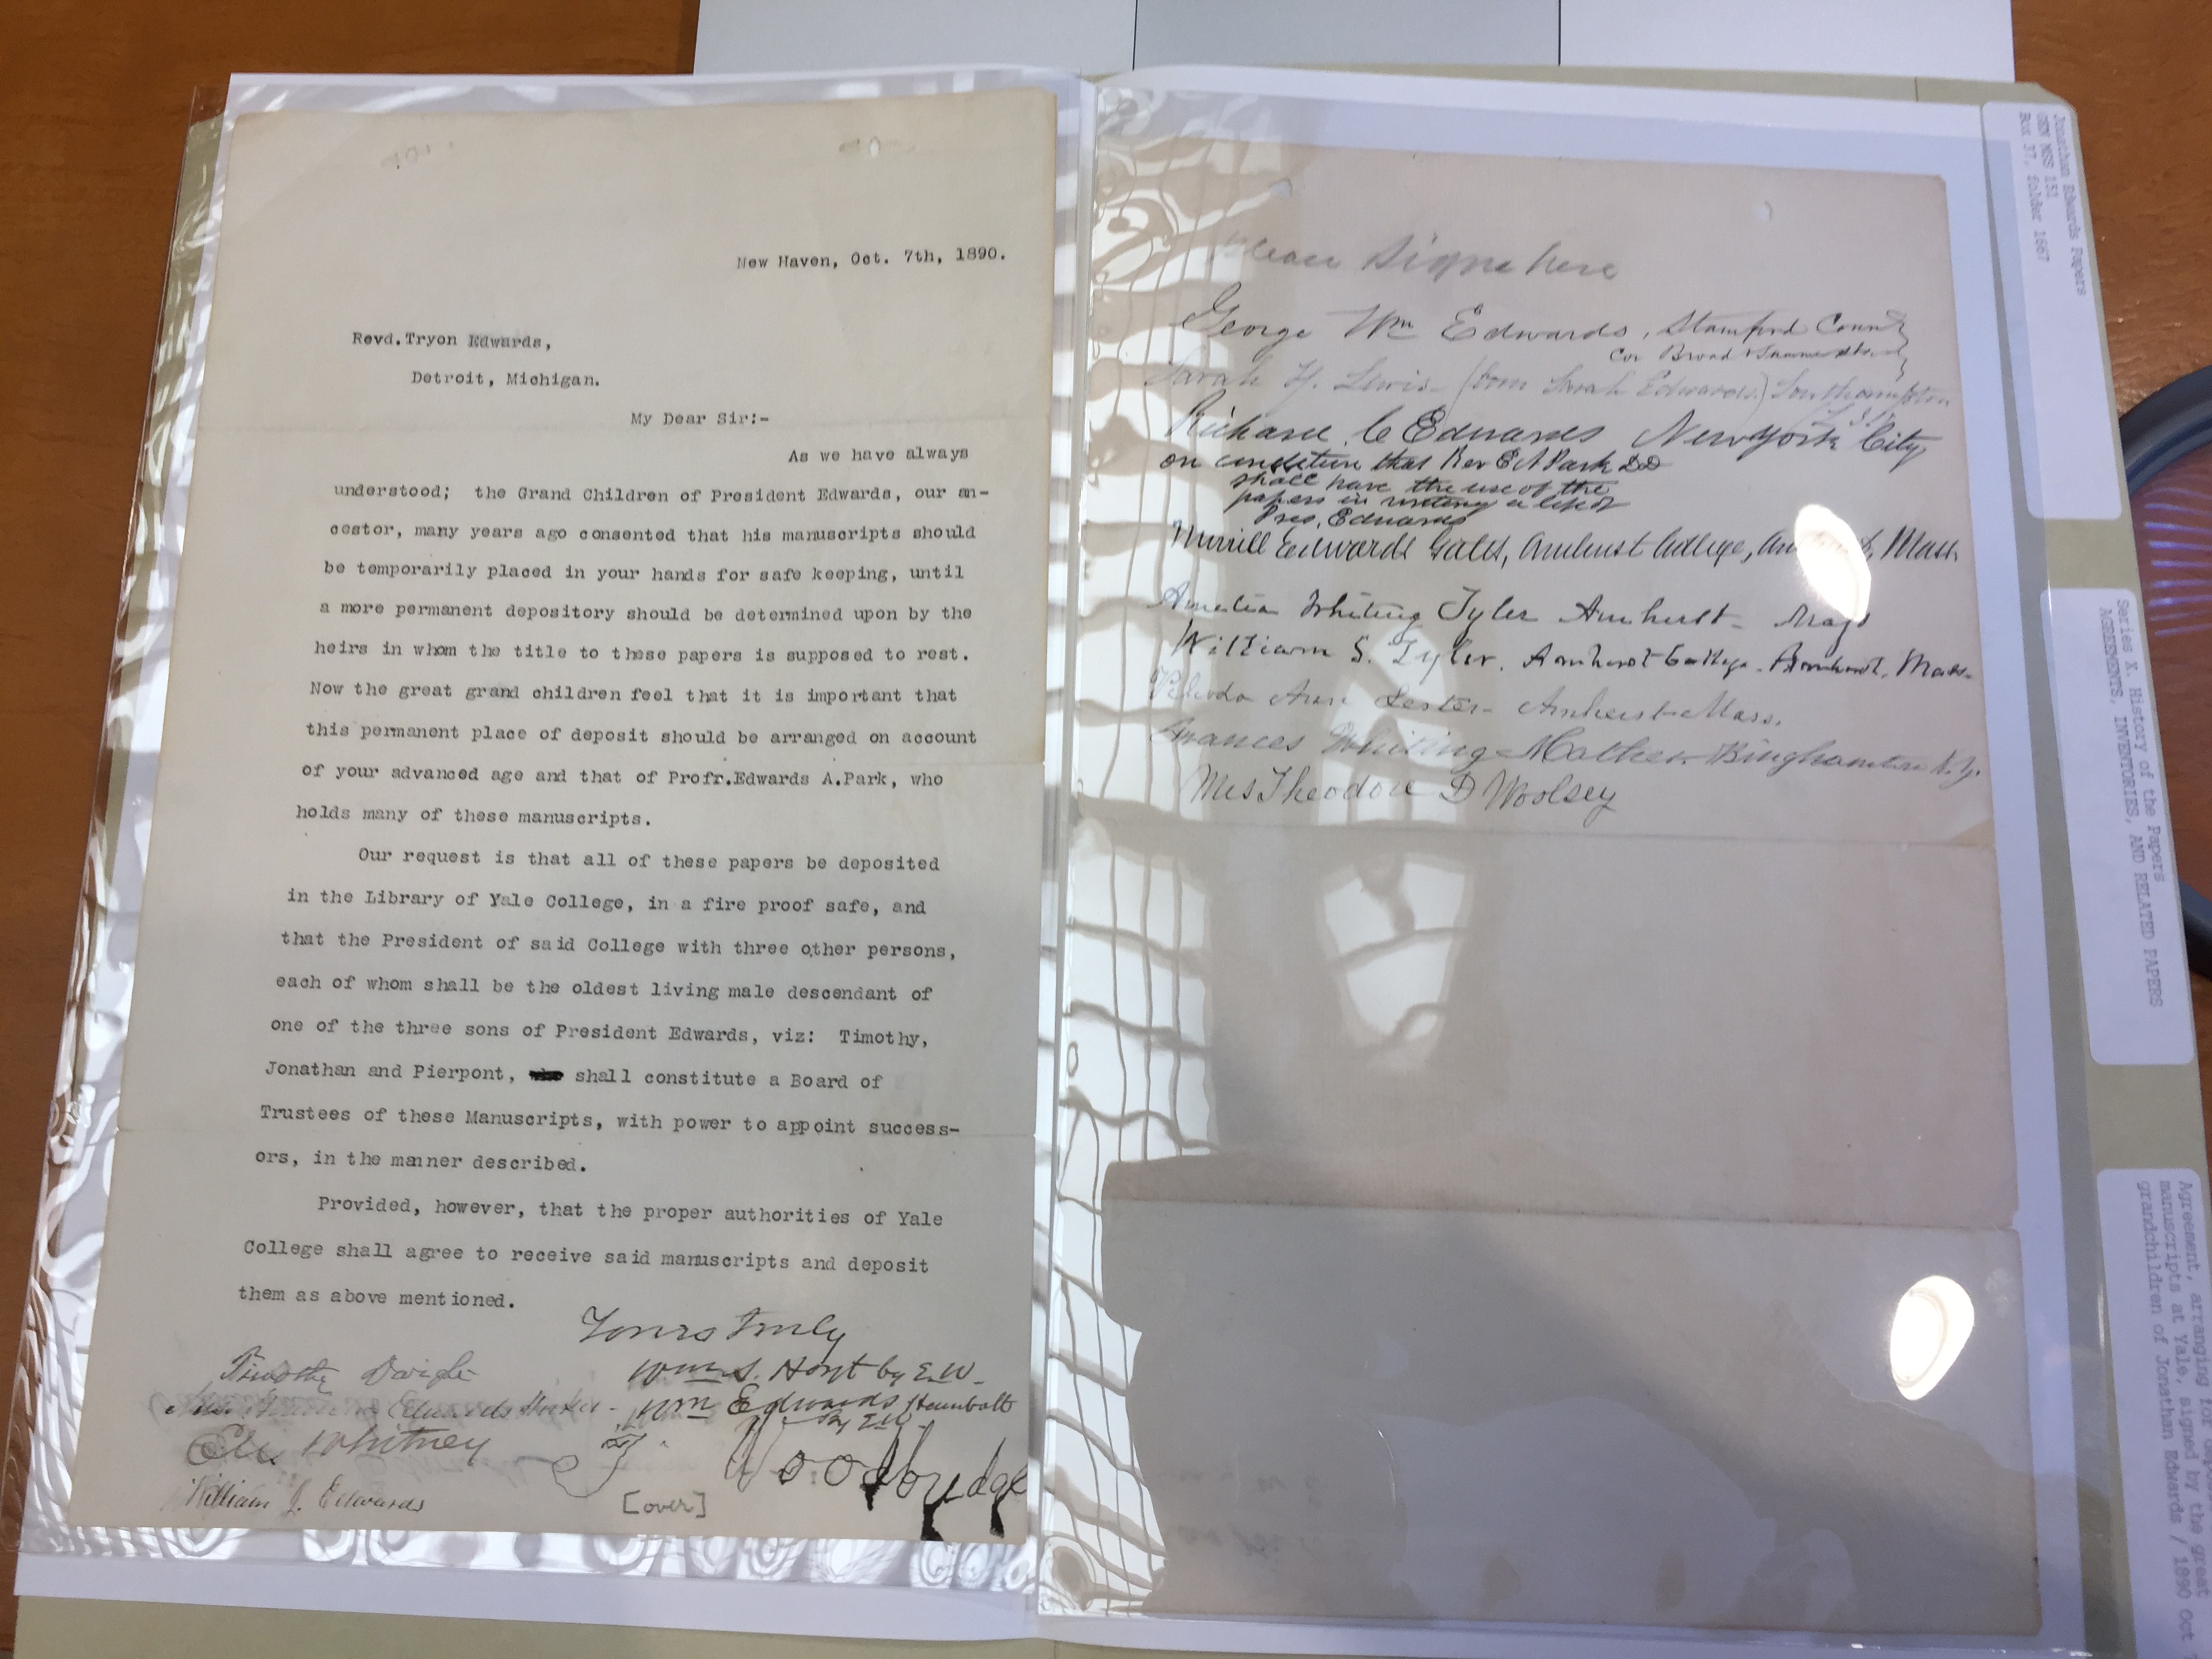 New Haven, Oct. 7th, 1890.
Revd.Tryon Edwards,
Detroit, Michigan.
My Dear Sir:-
As we have always
understood; the Grand Children of President Edwards, our an-
cestor, many years ago consented that his manuscripts should
be temporarily placed in your hands for safe keeping, until
a more permanent depository should be determined upon by the
heirs in whom the title to these papers is supposed to rest.
Now the great grand children feel that it is important that
this permanent place of deposit should be arranged on account
of your advanced age and that of Profr.Edwards A.Park, who
holds many of these manuscripts.
Our request is that all of these papers be deposited
in the Library of Yale College, in a fire proof safe, and
that the President of said College with three other persons,
each of whom shall be the oldest living male descendant of
one of the three sons of President Edwards, viz: Timothy,
Jonathan and Pierpont, shall constitute a Board of
Trustees of these Manuscripts, with power to appoint success-
ors, in the manner described.
Provided, however, that the proper authorities of Yale
College shall agree to receive said manuscripts and deposit
them as above mentioned.
Yours truly
Timothy Dwight
Edwards
Eli Whitney
William J. Edwards
Wm S. Hoyt by E.W.
Wm Edwards
By E.W.
Woodbridge
[over]
Please Signe here
George Wm Edwards, Stamford Conn
Cor Broad &
Sarah H. Lewis (born Sarah Edwards) Southampton
Richard C Edwards New York City
on condition that Rev E A Park DD
shall have the use of the
papers in writing a life of
Pres. Edwards
Merrill Edwards Gates, Amherst College, Mass.
Amelia Whiting Tyler Amherst Mass
William S. Tyler, Amherst College. Amherst, Mass.
Ann Lester Amherst Mass.
Frances Whiting Mather Binghamton N.Y.
Mrs Theodore D Woolsey
Jonathan Edwards Papers
GEN MSS 151
Box 37, folder 1667
Series X. History of the Papers
AGREEMENTS, INVENTORIES, AND RELATED PAPERS
Agreement, arranging for
manuscripts at Yale, signed by the great
grandchildren of Jonathan Edwards / 1890 Oct